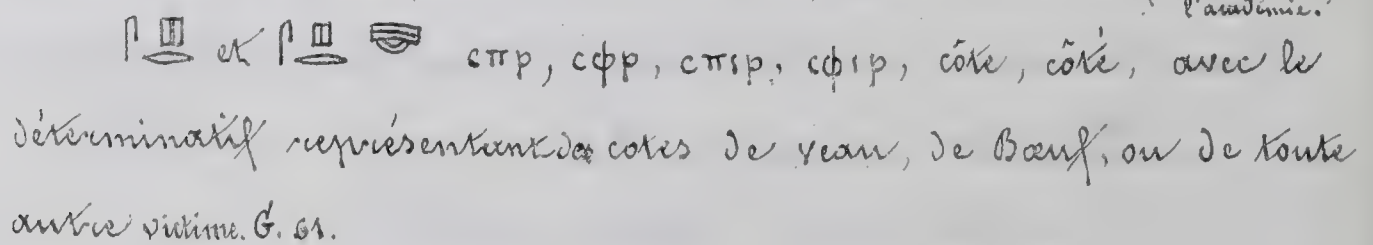 l'académie.
𓋴𓊪𓂋 et 𓋴𓊪𓂋 ⲥⲡⲣ, ⲥⲫⲣ, ⲥⲡⲓⲣ, ⲥⲫⲓⲣ, côte, côté, avec le
déterminatif représentant de cotes de veau, de Bœuf, ou de toute
autre victime. G. 61.